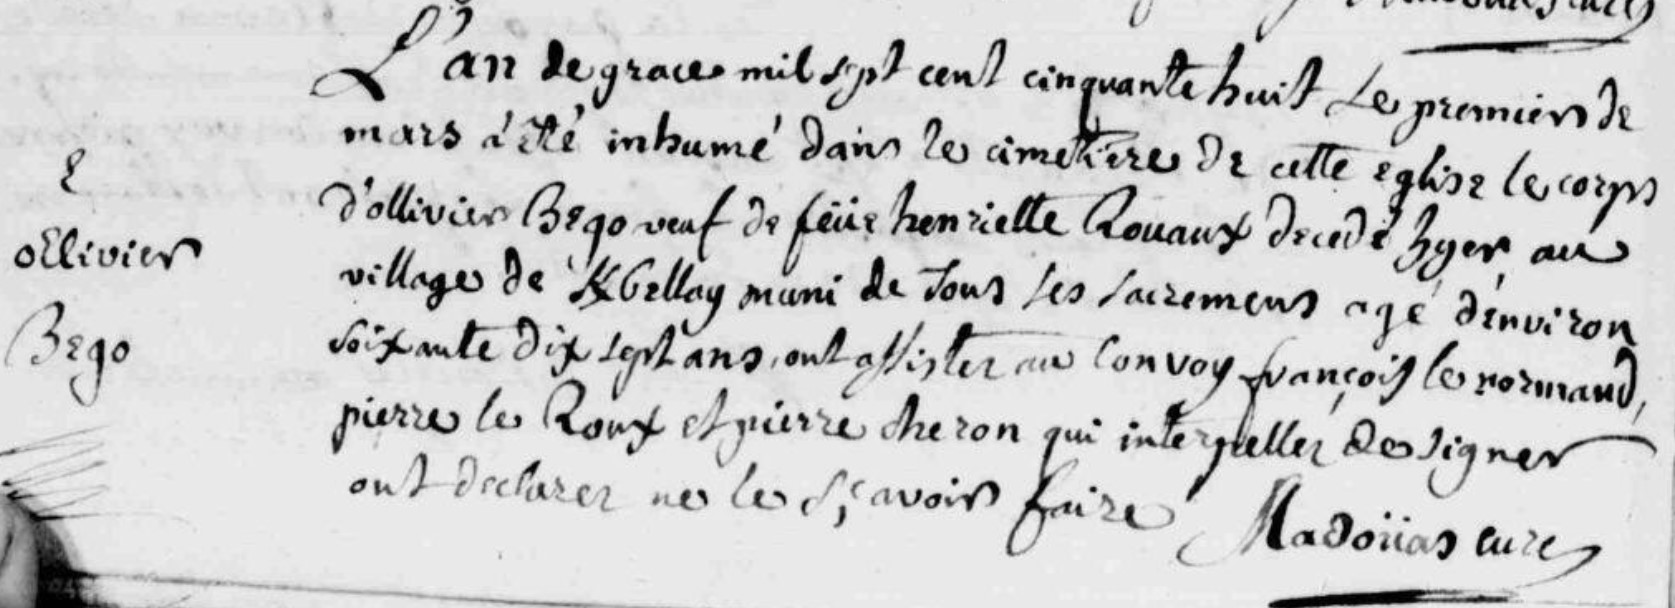 L'an de grace mil sept cent cinquante huit Le premier de
mars a été inhumé dans le cimetiere de cette eglise le corps
E
d'ollivier Bego veuf de feüe henriette Rouaux decedé hyer au
ollivier
village de muni de tous ses sacremens agé d'environ
Bego
soixante dix sept ans, ont assister au Convoy françois le normand,
pierre le Roux et pierre cheron qui interpeller de signer
ont declarer ne le sçavoir faire Madoüas curé